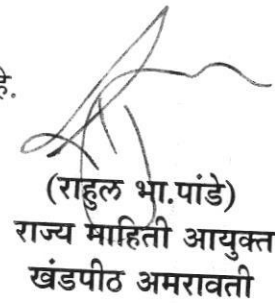 हे.
(राहुल भा.पांडे)
राज्य माहिती आयुक्त
खंडपीठ अमरावती